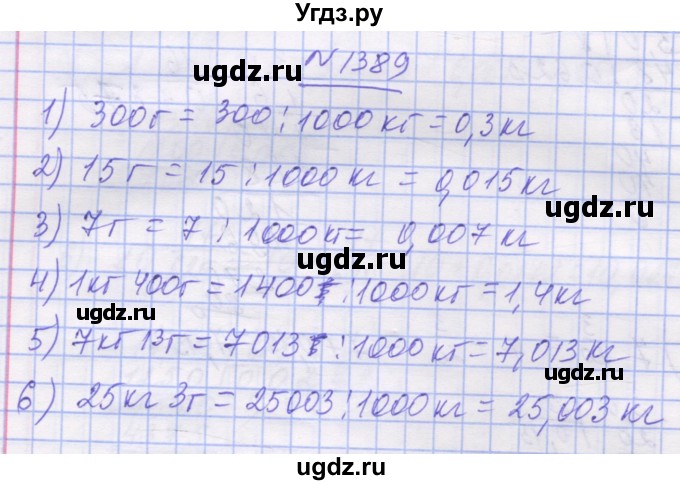 Угдз.ру
N 1389
ugdz.ru
ugdz.ru
1) 300г = 300 : 1000 кг = 0,3 кг
ugdz.ru
2) 15 г = 15 : 1000 кг = 0,015 кг
ugdz.ru
ugdz.ru
3) 7г = 7 : 1000 кг = 0,007 кг
ugdz.ru
4) 1кг 400г = 1400 : 1000 кг = 1,4 кг
ugdz.ru
5) 7кг 13г = 7013 : 1000 кг = 7,013 кг
ugdz.ru
ugdz.ru
6) 25 кг 3г = 25003 : 1000 кг = 25,003 кг
ugdz.ru
ugdz.ru